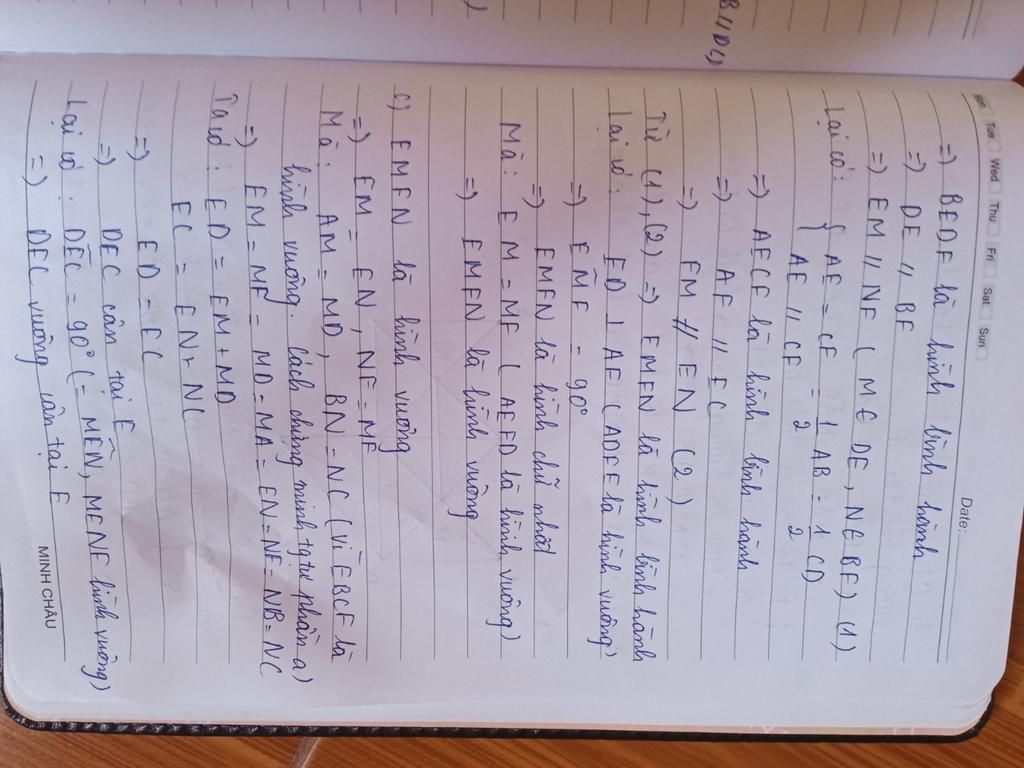 Date:
Mon Tue Wed Thu Fri Sat Sun
=) BEDF là hình bình hành
=) DE // BF
=) EM // NF ( M ∈ DE, N ∈ BF) (1)
Lại có: { AE = CF = 1/2 AB = 1/2 CD
{ AE // CF
=) AECF là hình bình hành
=) AF // EC
=) FM // EN (2)
Từ (1), (2) =) EMFN là hình bình hành
Lại có: ED ⊥ AF ( ADFE là hình vuông)
=) EMF = 90°
=) EMFN là hình chữ nhật
Mà: EM = MF ( AEFD là hình vuông)
=) EMFN là hình vuông
c) EMFN là hình vuông
=) EM = EN, NF = MF
Mà: AM = MD, BN = NC (vì EBCF là
hình vuông. cách chứng minh tg tự phần a)
=) EM = NF = MD = MA = EN = NF = NB = NC
Ta có: ED = EM + MD
EC = EN + NC
=) ED = EC
=) DEC cân tại E
Lại có: DEC = 90° (= MEN, MENF hình vuông)
=) DEC vuông cân tại E
MINH CHÂU